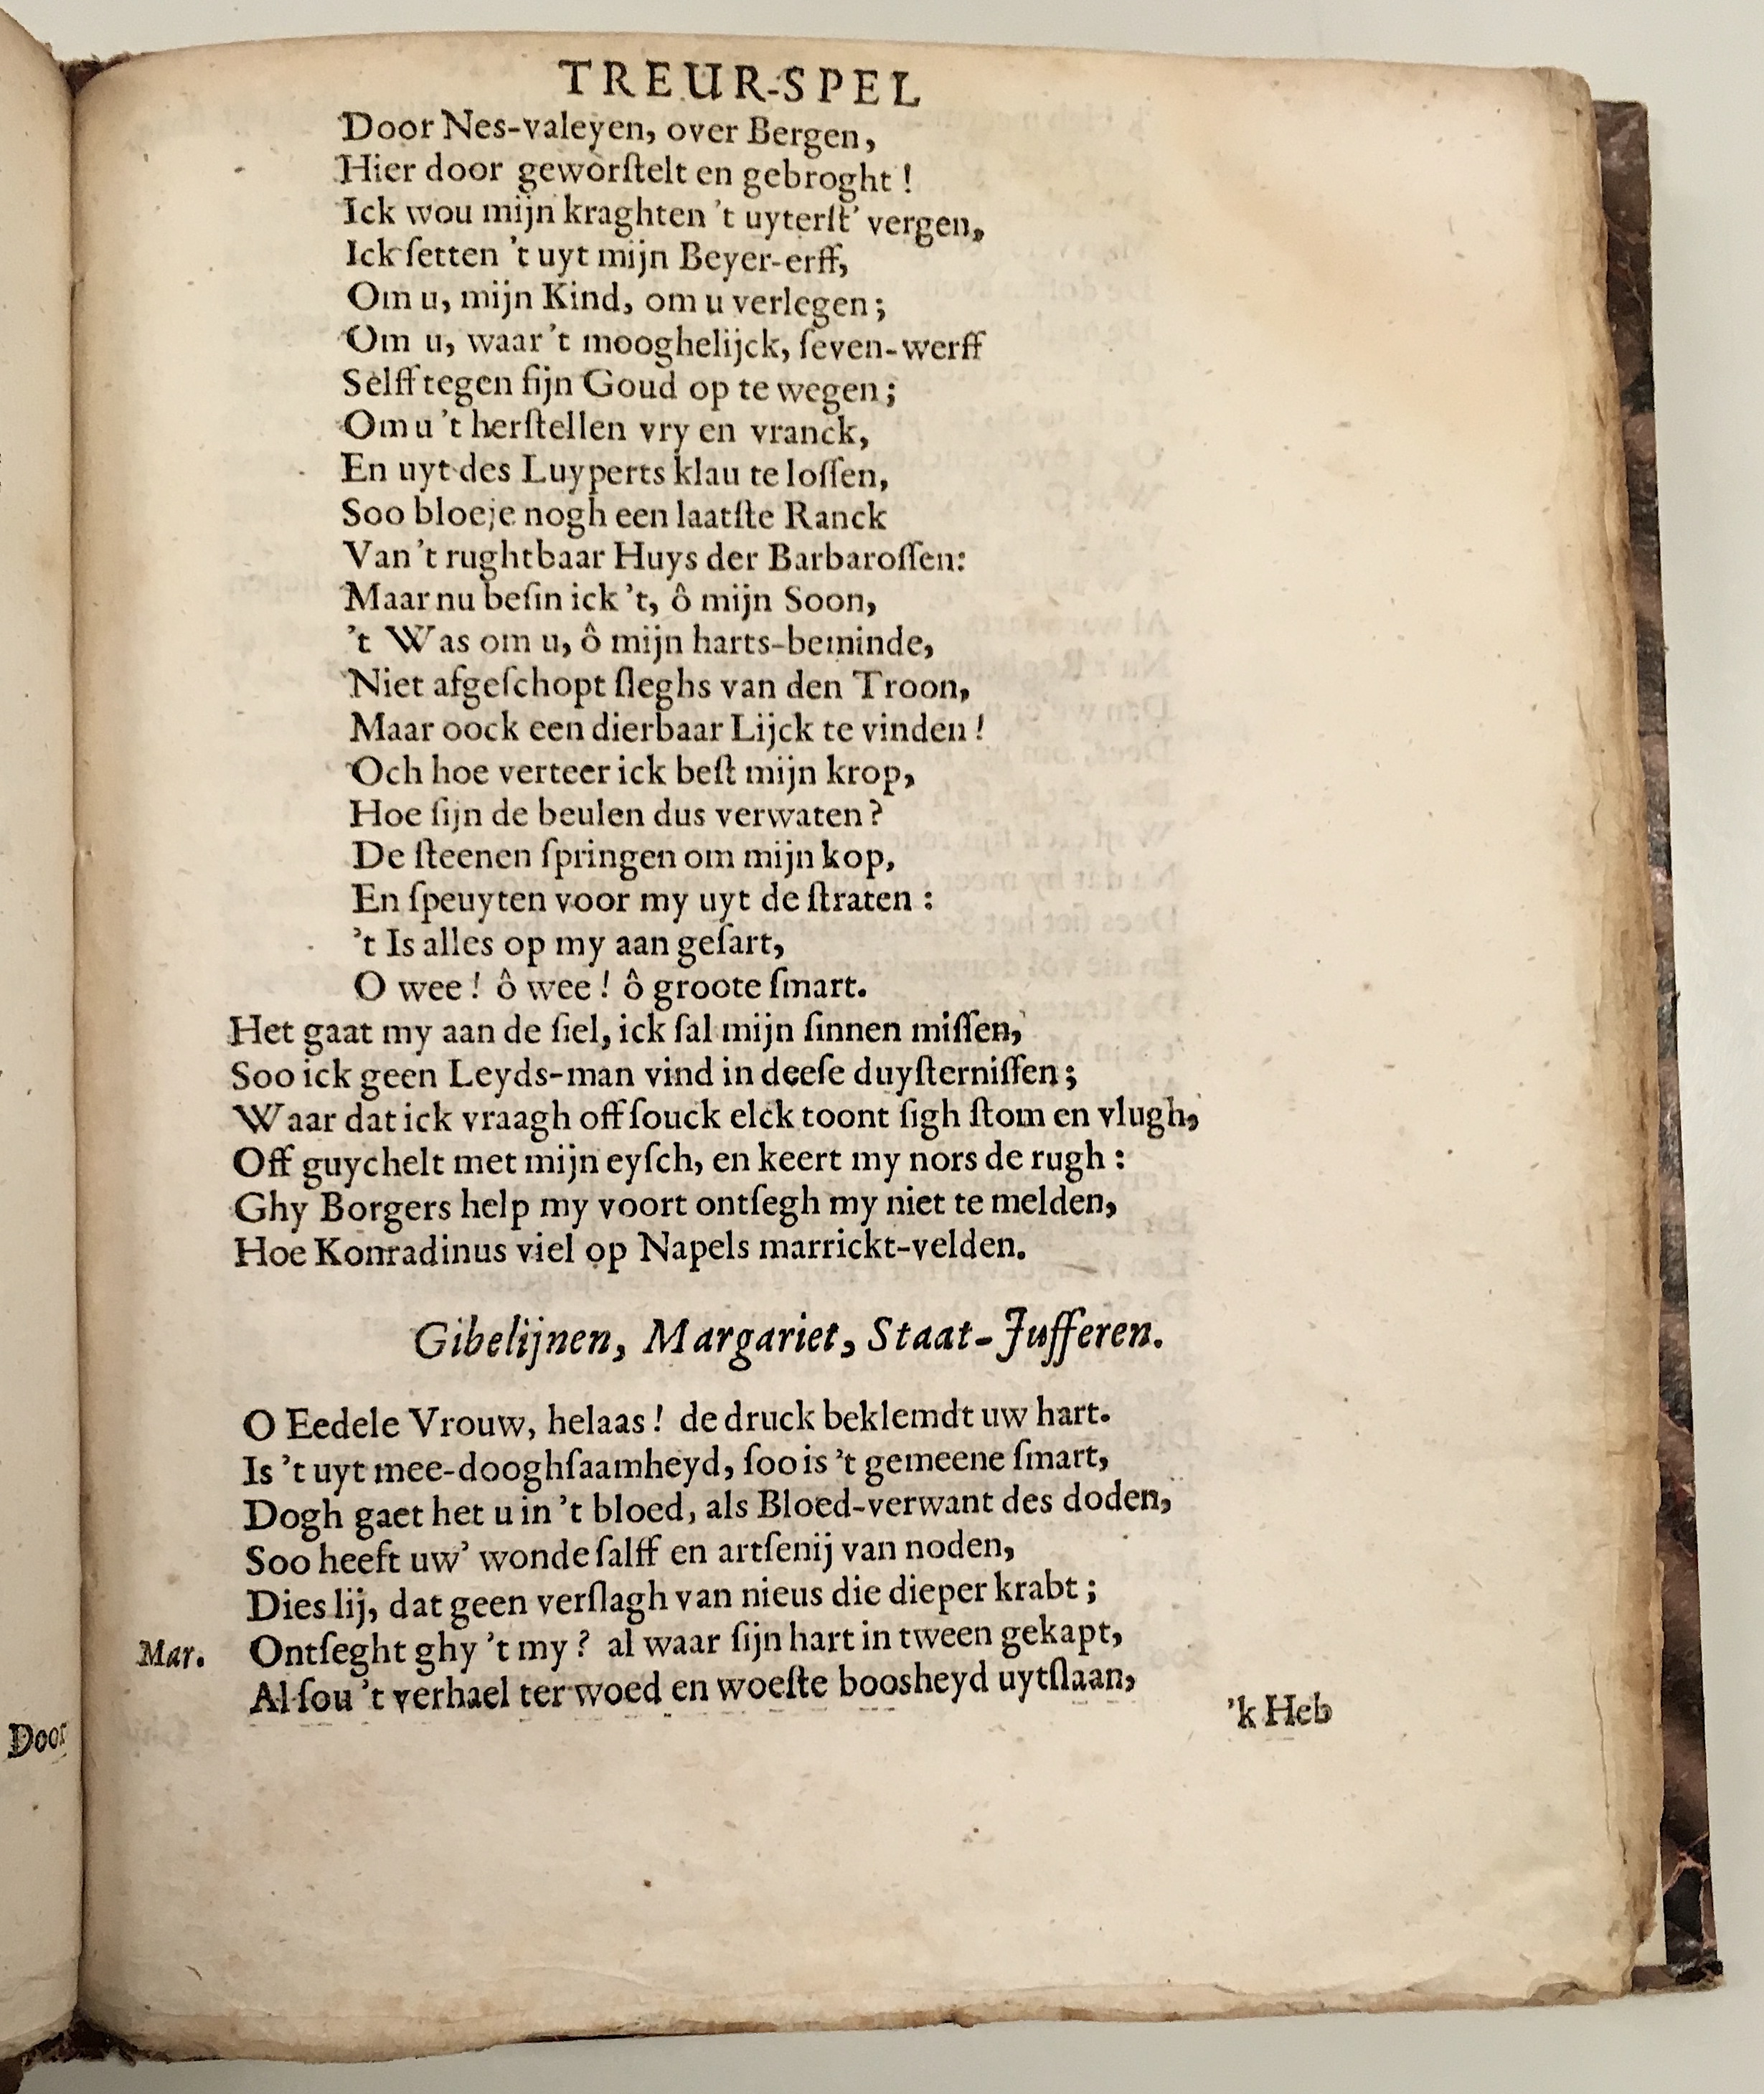 TREUR-SPEL
Door Nes-valeyen, over Bergen,
Hier door geworſtelt en gebroght!
Ick wou mijn kraghten 't uyterſt' vergen,
Ick ſetten 't uyt mijn Beyer-erff,
Om u, mijn Kind, om u verlegen;
Om u, waar 't mooghelijck, ſeven-werff
Selff tegen fijn Goud op te wegen;
Om u 't herſtellen vry en vranck,
En uyt des Luyperts klau te loſſen,
Soo bloeje nogh een laatſte Ranck
Van 't rughtbaar Huys der Barbaroſſen:
Maar nu beſin ick 't, ô mijn Soon,
't Was om u, ô mijn harts-beminde,
Niet afgeſchopt ſleghs van den Troon,
Maar oock een dierbaar Lijck te vinden!
Och hoe verteer ick beſt mijn krop,
Hoe ſijn de beulen dus verwaten?
De ſteenen ſpringen om mijn kop,
En ſpeuyten voor my uyt de ſtraten:
't Is alles op my aan geſart,
O wee! ô wee! ô groote ſmart.
Het gaat my aan de ſiel, ick ſal mijn ſinnen miſſen,
Soo ick geen Leyds-man vind in deeſe duyſterniſſen;
Waar dat ick vraagh off ſouck elck toont ſigh ſtom en vlugh,
Off guychelt met mijn eyſch, en keert my nors de rugh:
Ghy Borgers help my voort ontſegh my niet te melden,
Hoe Konradinus viel op Napels marrickt-velden.
Gibelijnen, Margariet, Staat-Jufferen.
O Eedele Vrouw, helaas! de druck beklemdt uw hart.
Is 't uyt mee-dooghſaamheyd, ſoo is 't gemeene ſmart,
Dogh gaet het u in 't bloed, als Bloed-verwant des doden,
Soo heeft uw' wonde ſalff en artſenij van noden,
Dies lij, dat geen verſlagh van nieus die dieper krabt;
Mar. Ontſeght ghy 't my? al waar ſijn hart in tween gekapt,
Al ſou 't verhael ter woed en woeſte boosheyd uytſlaan,
'k Heb
Door